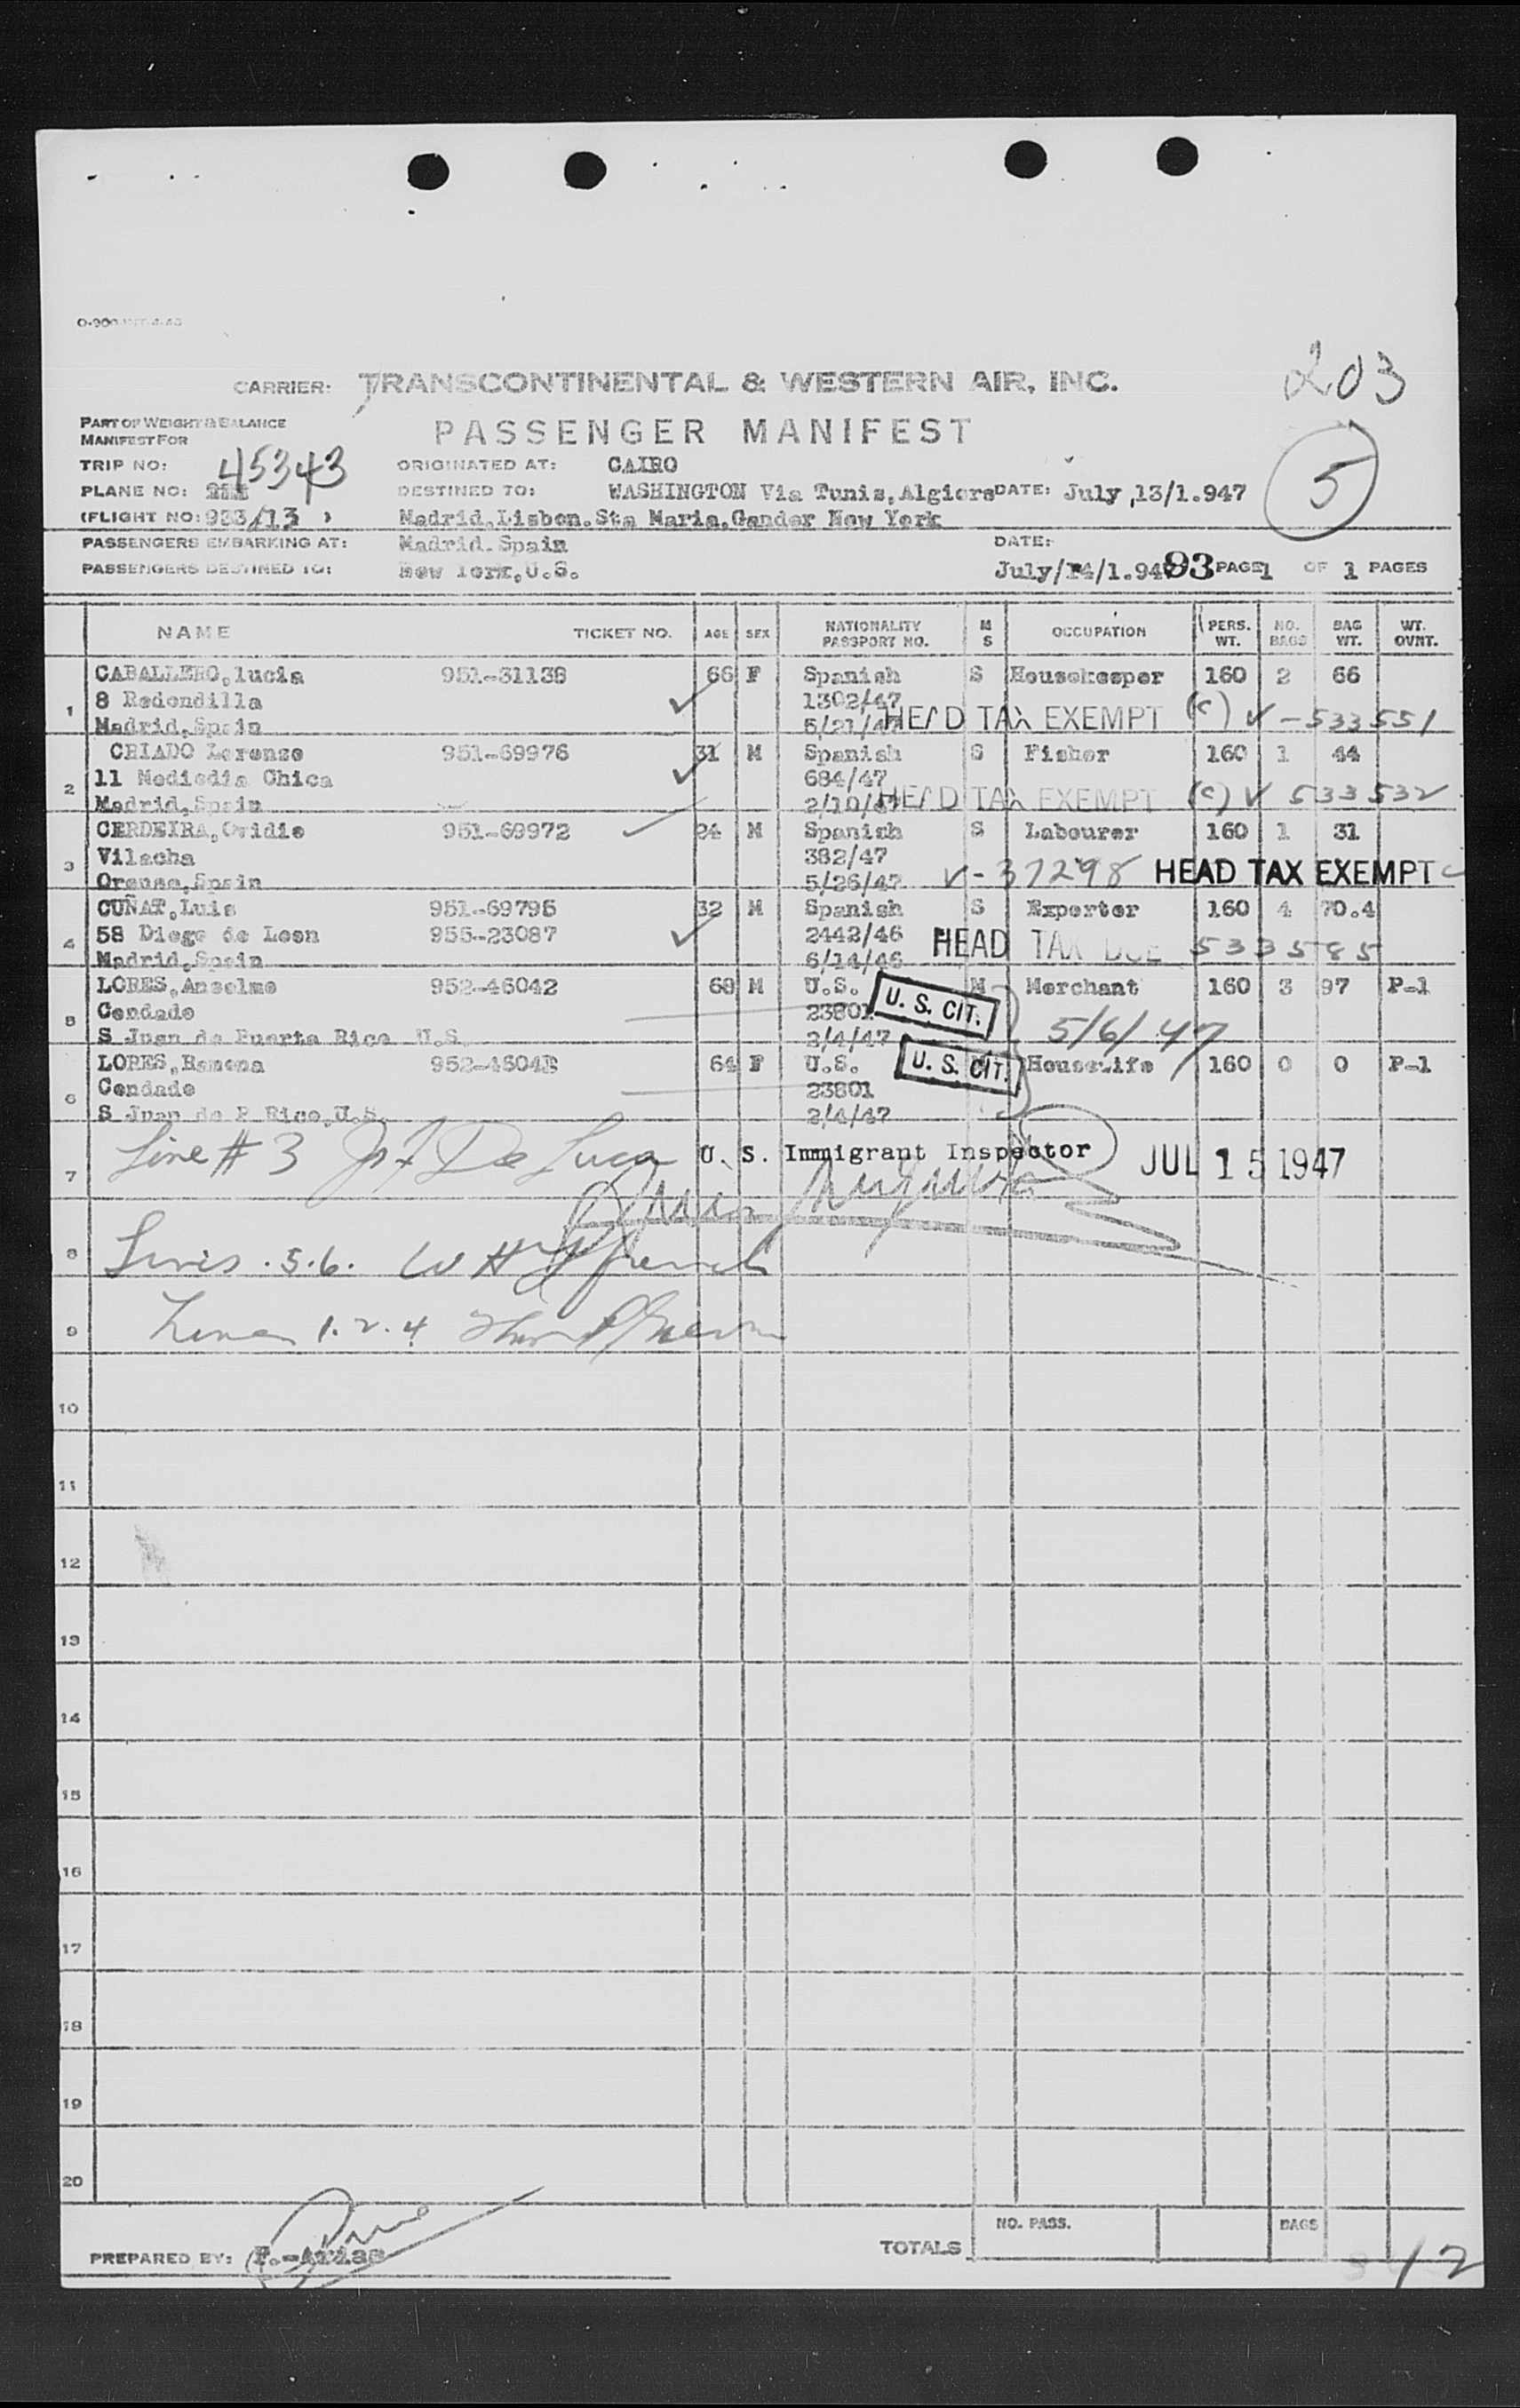 203
CARRIER: TRANSCONTINENTAL & WESTERN AIR, INC.
PART OF WEIGHT & BALANCE
MANIFEST FOR
PASSENGER MANIFEST
TRIP NO: 45343 ORIGINATED AT: CAIRO
5
PLANE NO: DESTINED TO: WASHINGTON Via Tunis,Algiers DATE: July ,13/1.947
(FLIGHT NO: 933/13 ) Madrid,Lisbon.Sta Maria,Gander New York
PASSENGERS EMBARKING AT: Madrid.Spain DATE:
PASSENGERS DESTINED TO: New York,U.S. July/14/1.94 93 PAGE 1 OF 1 PAGES
NAME TICKET NO. AGE SEX NATIONALITY PASSPORT NO. M S OCCUPATION PERS. WT. NO. BAGS BAG WT. WT. OVNT.
CABALLERO,lucia 951-31138 66 F Spanish S Housekeeper 160 2 66
1 8 Redondilla 1302/47
Madrid,Spain 5/21/47 HEAD TAX EXEMPT (c) V-533551
CRIADO Lorenzo 951-69976 31 M Spanish S Fisher 160 1 44
2 11 Mediodia Chica 684/47
Madrid,Spain 2/10/47 HEAD TAX EXEMPT (c) V 533532
CERDEIRA,Ovidio 951-69972 24 M Spanish S Labourer 160 1 31
3 Vilacha 382/47
Orense,Spain 5/26/47 V-37298 HEAD TAX EXEMPT C
CUÑAT,Luis 951-69795 32 M Spanish S Exporter 160 4 70.4
4 58 Diego de Leon 955-23087 2442/46
Madrid,Spain 6/14/46 HEAD TAX DUE 533585
LORES,Anselmo 952-46042 68 M U.S. M Merchant 160 3 97 P-1
5 Condado 23801 U. S. CIT.
S Juan de Puerto Rico U.S. 2/4/47 5/6/47
LORES,Ramona 952-4604 64 F U.S. U. S. CIT. Housewife 160 0 0 P-1
6 Condado 23801
S Juan de P Rico,U.S. 2/4/47
7 Line # 3 De Luca U. S. Immigrant Inspector JUL 15 1947
8 Lines . 5.6. W H
9 Lines 1.2.4
10
11
12
13
14
15
16
17
18
19
20
PREPARED BY: TOTALS NO. PASS. BAGS
12